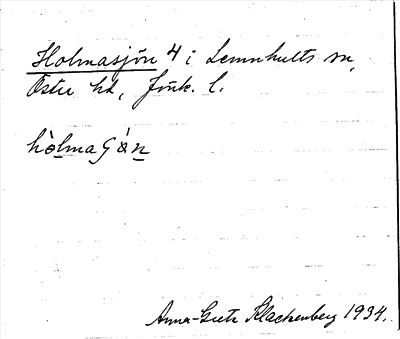 Holmasjön 4 i Lemnhults sn,
Östra hd, Jönk. l.
hòlmaʃö́n
Anna-Greta Klackenberg 1934.